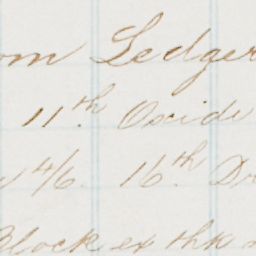 om Ledger
11th. Oxide
4/6. 16th. Dr
Block ex thk